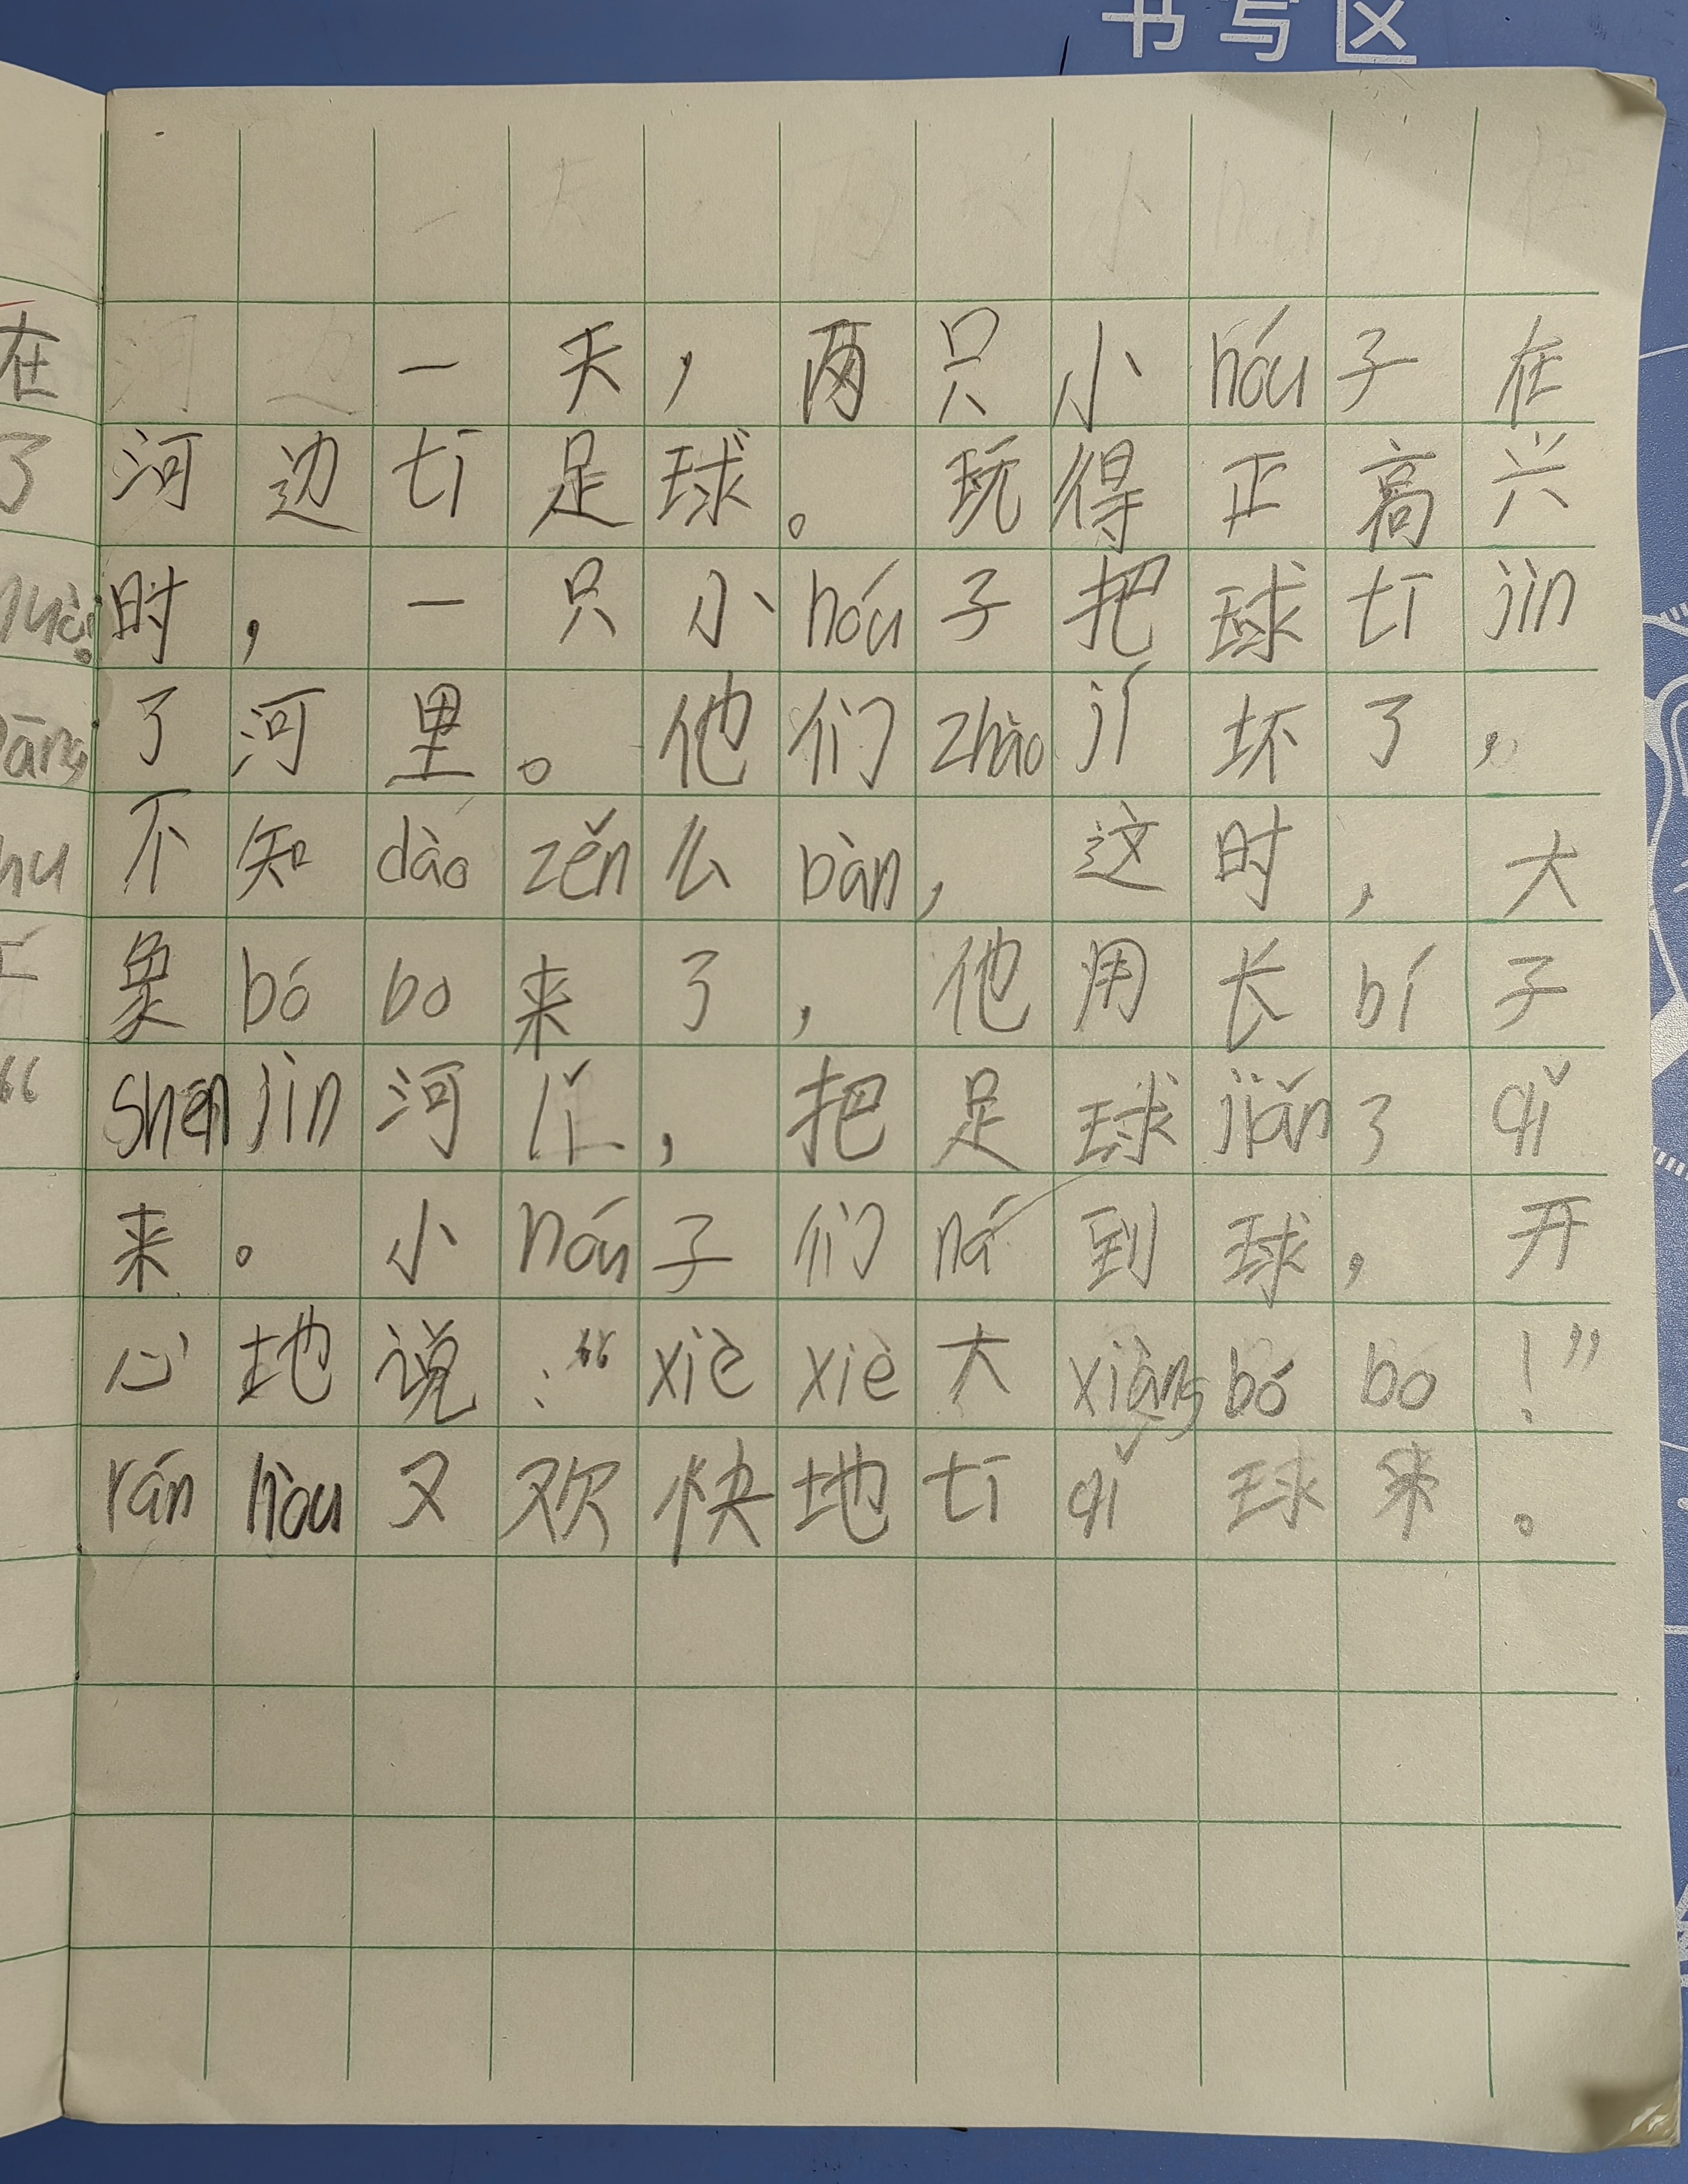 书写区
一天，两只小hóu子在
河边tī足球。玩得正高兴
时，一只小hóu子把球tī jìn
了河里。他们zháo jí坏了，
不知dào zěn么bàn，这时，大
象bó bo来了，他用长bí子
shēn jìn河lǐ，把足球jiǎn了qǐ
来。小hóu子们ná到球，开
心地说：“xiè xiè大xiàng bó bo！”
rán hòu又欢快地tī qǐ球来。